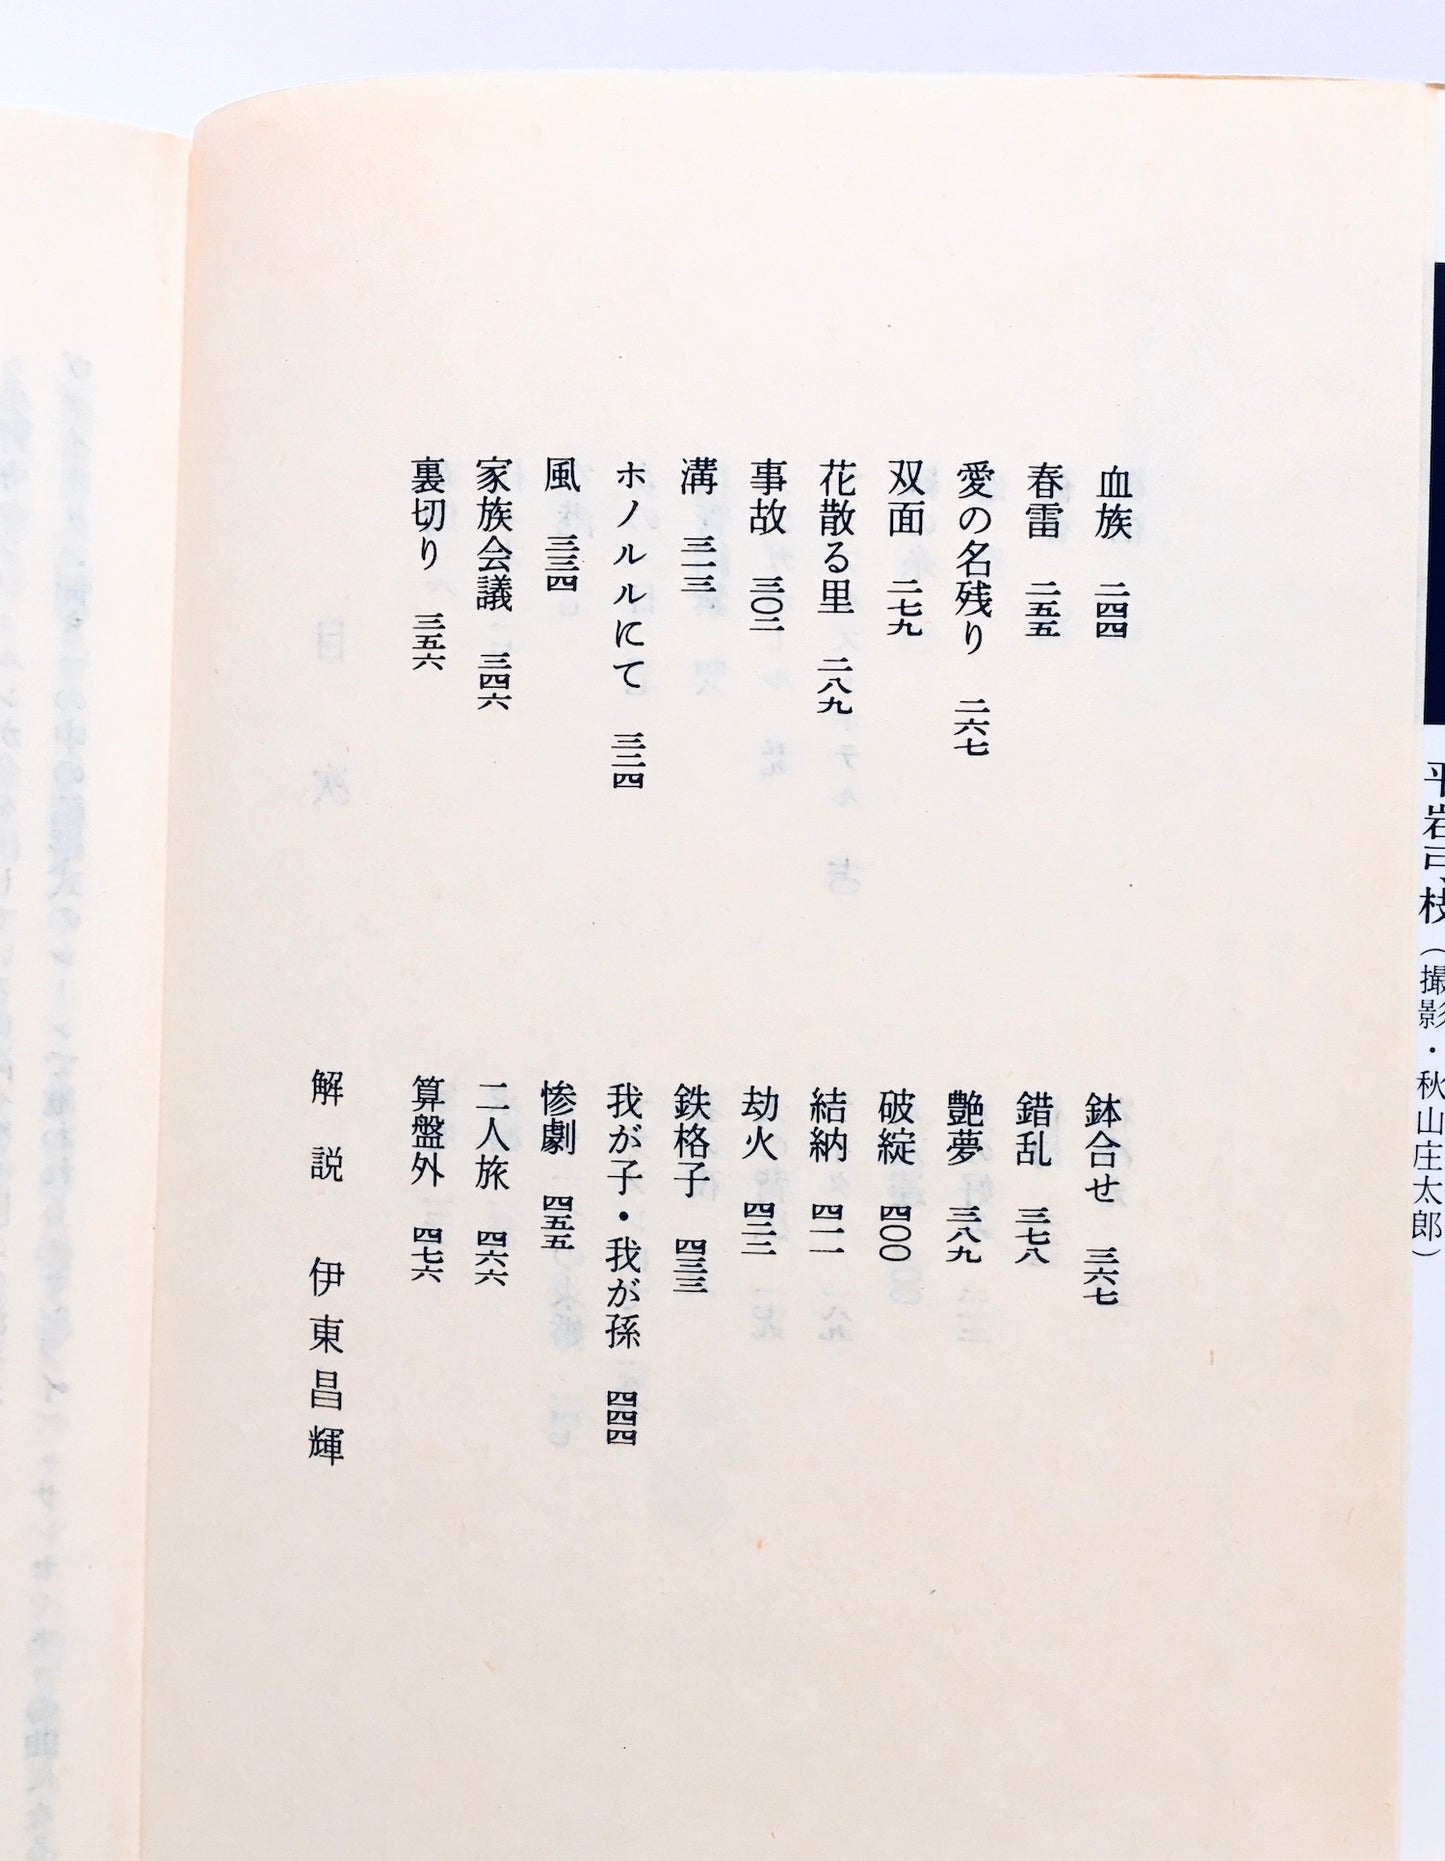 平岩弓枝（撮影・秋山庄太郎）
血族　二四四
春雷　二五五
愛の名残り　二六七
双面　二七九
花散る里　二八九
事故　三〇二
溝　三一三
ホノルルにて　三二四
風　三三四
家族会議　三四六
裏切り　三五六
鉢合せ　三六七
錯乱　三七八
艶夢　三八九
破綻　四〇〇
結納　四一一
劫火　四二二
鉄格子　四三三
我が子・我が孫　四四四
惨劇　四五五
二人旅　四六六
算盤外　四七六
解説　伊東昌輝